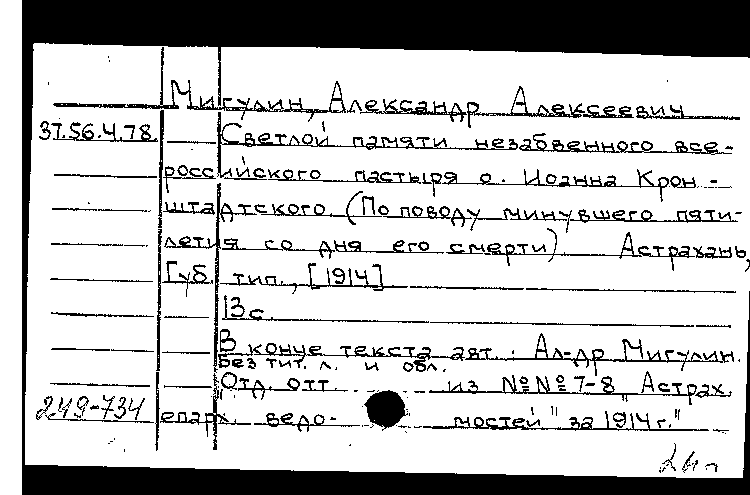 Мигулин, Александр Алексеевич
37.56.4.78. Светлой памяти незабвенного все-
российского пастыря о. Иоанна Крон-
штадтского. (По поводу минувшего пяти-
летия со дня его смерти) Астрахань,
Губ. тип., [1914]
13 с.
В конце текста авт.: Ал-др Мигулин.
Без тит. л. и обл.
Отд. отт. из №№ 7-8 "Астрах.
249-734 епарх. ведо- мостей" за 1914 г."